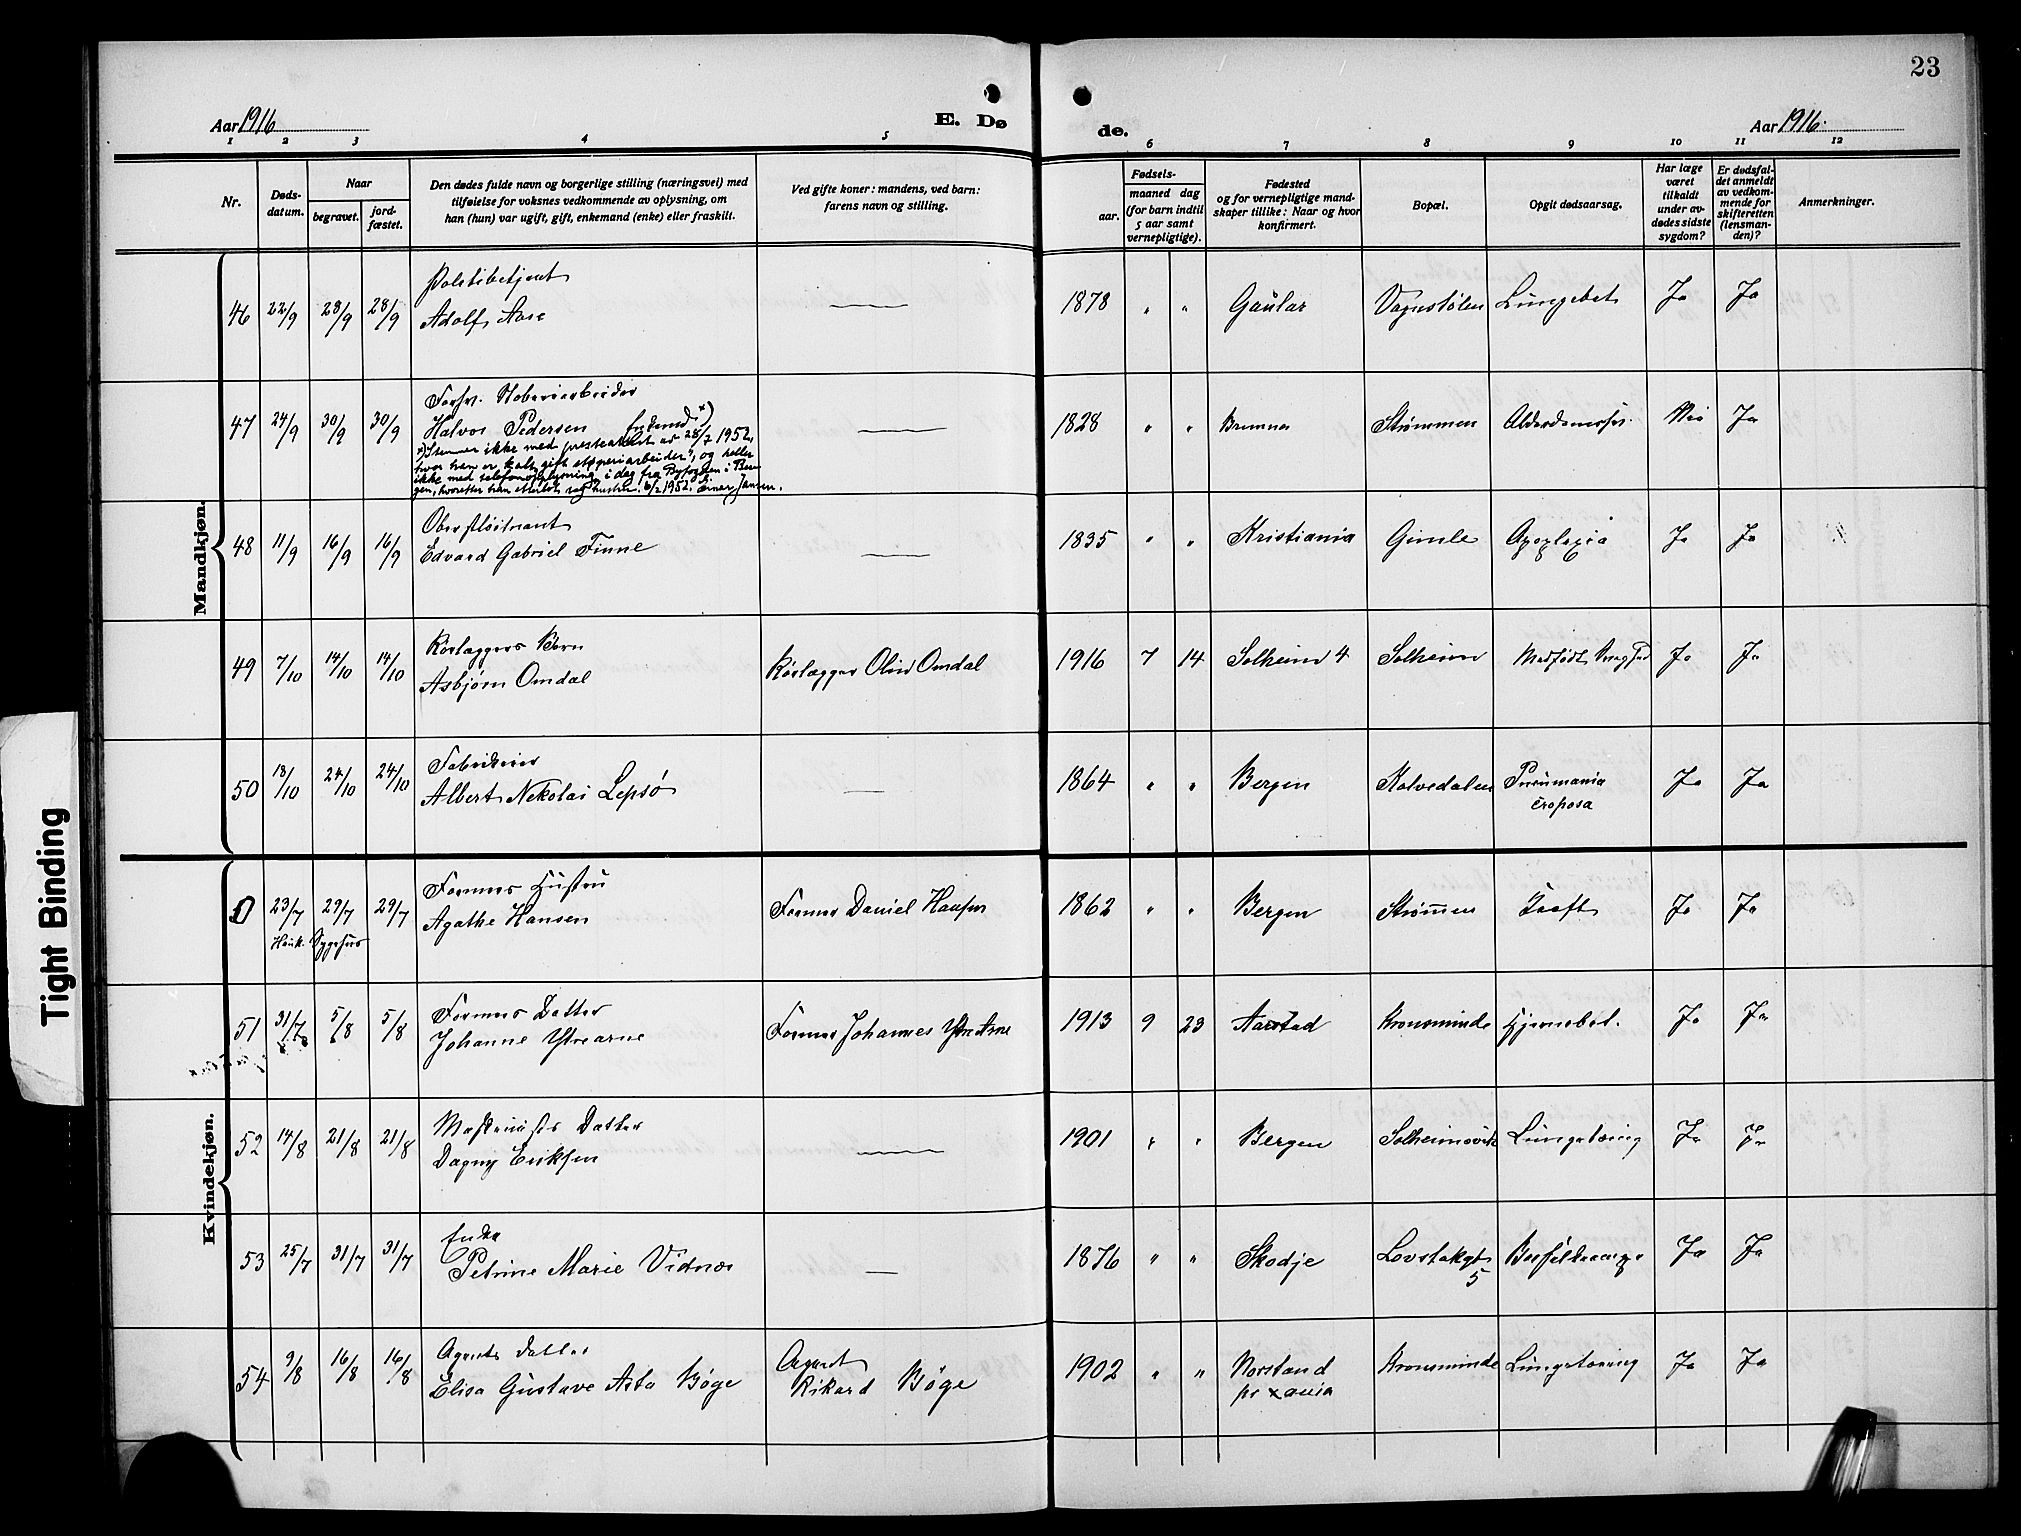 23
Aar 1916
E. Dø
de.
Aar 1916.
1 2 3 4 5 6 7 8 9 10 11 12
Nr.
Døds-
datum.
Naar
begravet.
jord-
fæstet.
Den dødes fulde navn og borgerlige stilling (næringsvei) med
tilføielse for voksnes vedkommende av oplysning, om
han (hun) var ugift, gift, enkemand (enke) eller fraskilt.
Ved gifte koner: mandens, ved barn:
farens navn og stilling.
Fødsels-
aar.
maaned dag
(for barn indtil
5 aar samt
vernepligtige).
Fødested
og for vernepligtige mand-
skaper tillike: Naar og hvor
konfirmert.
Bopæl.
Opgit dødsaarsag.
Har læge
været
tilkaldt
under av-
dødes sidste
sygdom?
Er dødsfal-
det anmeldt
av vedkom-
mende for
skifteretten
(lensman-
den)?
Anmerkninger.
Mandkjøn.
Politibetjent
46 22/9 28/9 28/9 Adolf Aase 1878 " " Gaular Vognstølen Lungebet Ja Ja
Forhv. Støberiarbeider
47 24/9 30/9 30/9 Halvor Pedersen Enkemd. x) 1828 " " Bremnes Strømmen Nei Ja
x) Stemmer ikke med presteattest av 28/7 1952,
hvor han er kalt „gift støperiarbeider“, og heller
ikke med telefonopplysning i dag fra Byfogden i Ber-
gen, hvoretter han etterlot seg hustru. 6/2 1952. Einar Jansen.
Oberstløitnant
48 11/9 16/9 16/9 Edvard Gabriel Finne 1835 " " Kristiania Gimle Apoplexia Ja Ja
Rørlæggers Barn
49 7/10 14/10 14/10 Asbjørn Omdal Rørlægger Oluv Omdal 1916 7 14 Solheim 4 Solheim Medfødt Ja Ja
Fabrikeier
50 18/10 24/10 24/10 Albert Nikolai Lepsø 1864 " " Bergen Kalvedalen Pneumania Ja Ja
croposa
Kvindekjøn.
Formers Hustru
0 23/7 29/7 29/7 Agathe Hansen Former Daniel Hansen 1862 " " Bergen Strømmen Kræft Ja Ja
Hauk. Sygehus
Formers Datter
51 31/7 5/8 5/8 Johanne Ytrearne Former Johannes Ytrearne 1913 9 23 Aarstad Kronsminde Hjernebet. Ja Ja
Maskinists Datter
52 14/8 21/8 21/8 Dagny Eriksen 1901 " " Bergen Solheimsvik Lungetæring Ja Ja
Enke
53 25/7 31/7 31/7 Petrine Marie Vidnes 1876 " " Skodje Løvstakgt 5 Ja Ja
Agents datter
54 9/8 16/8 16/8 Elisa Gustave Asta Bøge Agent Rikard Bøge 1902 " " Norstand Kronsminde Lungetæring Ja Ja
pr xania
Tight Binding